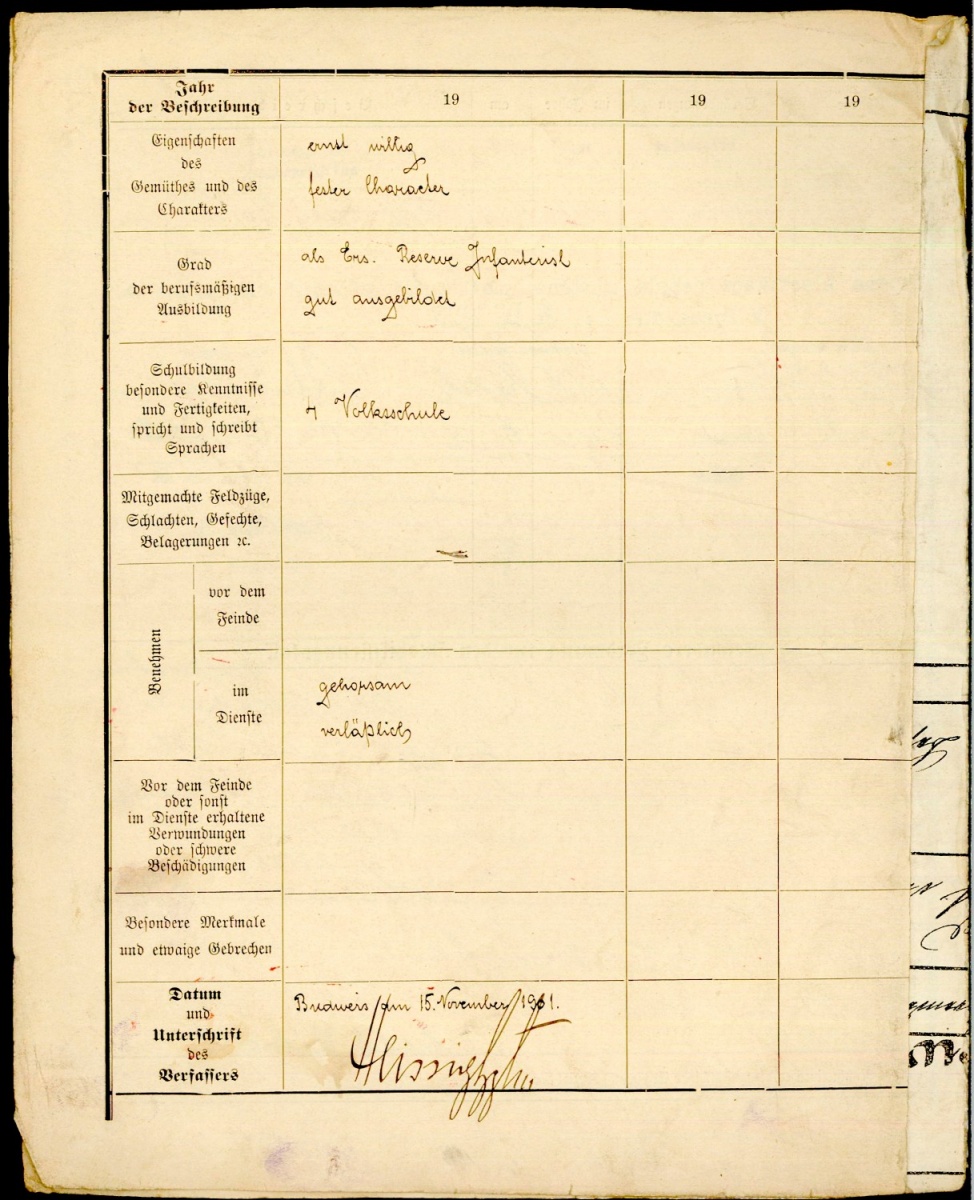 Jahr
der Beschreibung
19
19
19
Eigenschaften
des
Gemüthes und des
Charakters
ernst willig
fester Character
Grad
der berufsmäßigen
Ausbildung
als Ers. Reserve Infanterist
gut ausgebildet
Schulbildung
besondere Kenntnisse
und Fertigkeiten,
spricht und schreibt
Sprachen
4 Volksschule
Mitgemachte Feldzüge,
Schlachten, Gefechte,
Belagerungen ꝛc.
Benehmen
vor dem
Feinde
im
Dienste
gehorsam
verläßlich
Vor dem Feinde
oder sonst
im Dienste erhaltene
Verwundungen
oder schwere
Beschädigungen
Besondere Merkmale
und etwaige Gebrechen
Datum
und
Unterschrift
des
Verfassers
Budweis am 15. November